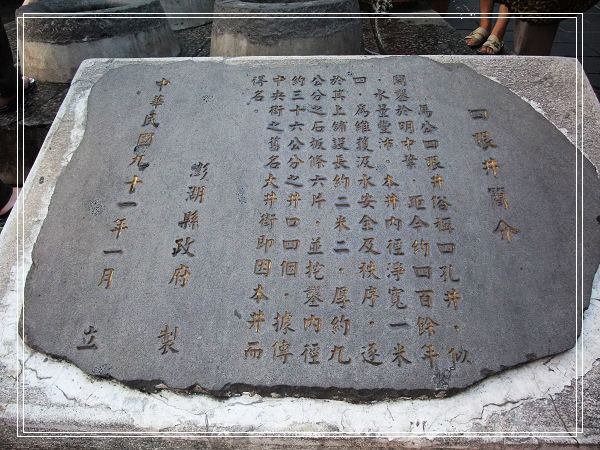 四張井簡介
馬公四張井俗稱四孔井，似
開鑿於明中葉，距今約四百餘年
，水量豐沛。本井內徑淨寬一米
四，為維護汲水安全及秩序，遂
於其上舖設長約二米二，厚約九
公分之石板條六片，並挖鑿內徑
約三十六公分之井口四個，據傳
中央街之舊名大井街即因本井而
得名。
澎湖縣政府 製
中華民國九十一年一月 立